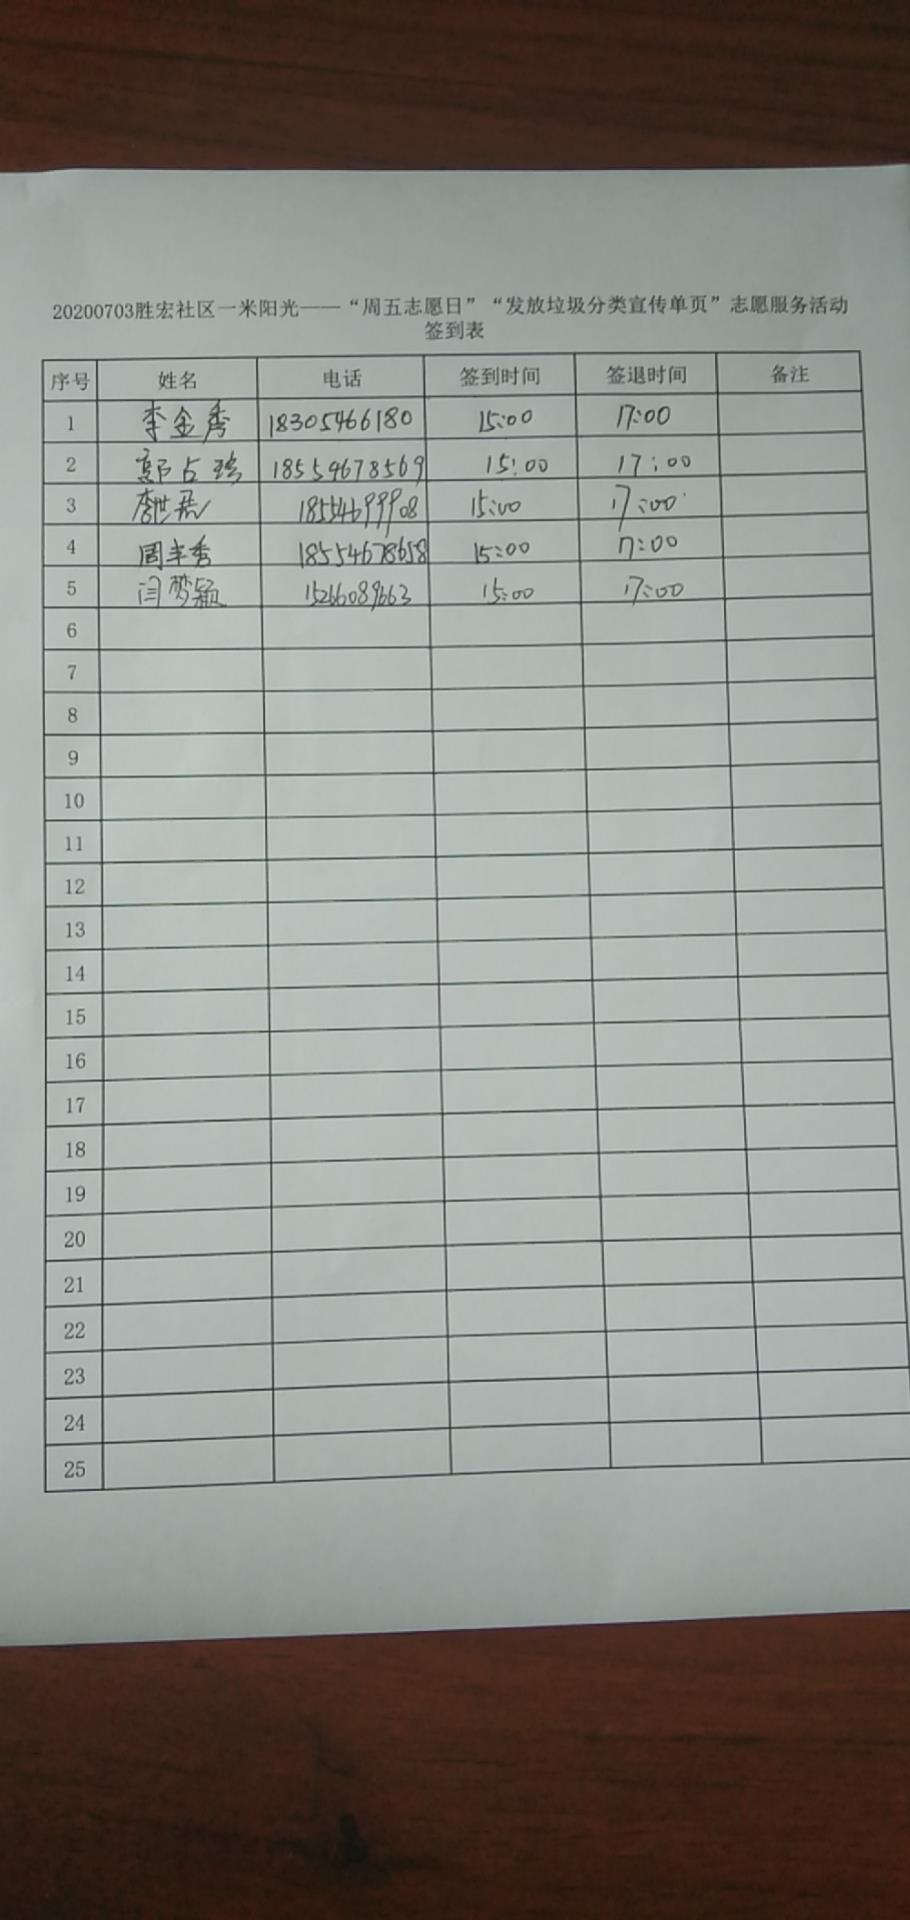 20200703胜宏社区一米阳光——“周五志愿日”“发放垃圾分类宣传单页”志愿服务活动
签到表
序号 姓名 电话 签到时间 签退时间 备注
1 李金秀 18305466180 15:00 17:00
2 郭占 18554678569 15:00 17:00
3 李世 18554699908 15:00 17:00
4 周丰秀 18554678658 15:00 17:00
5 闫梦颖 15266089663 15:00 17:00
6
7
8
9
10
11
12
13
14
15
16
17
18
19
20
21
22
23
24
25